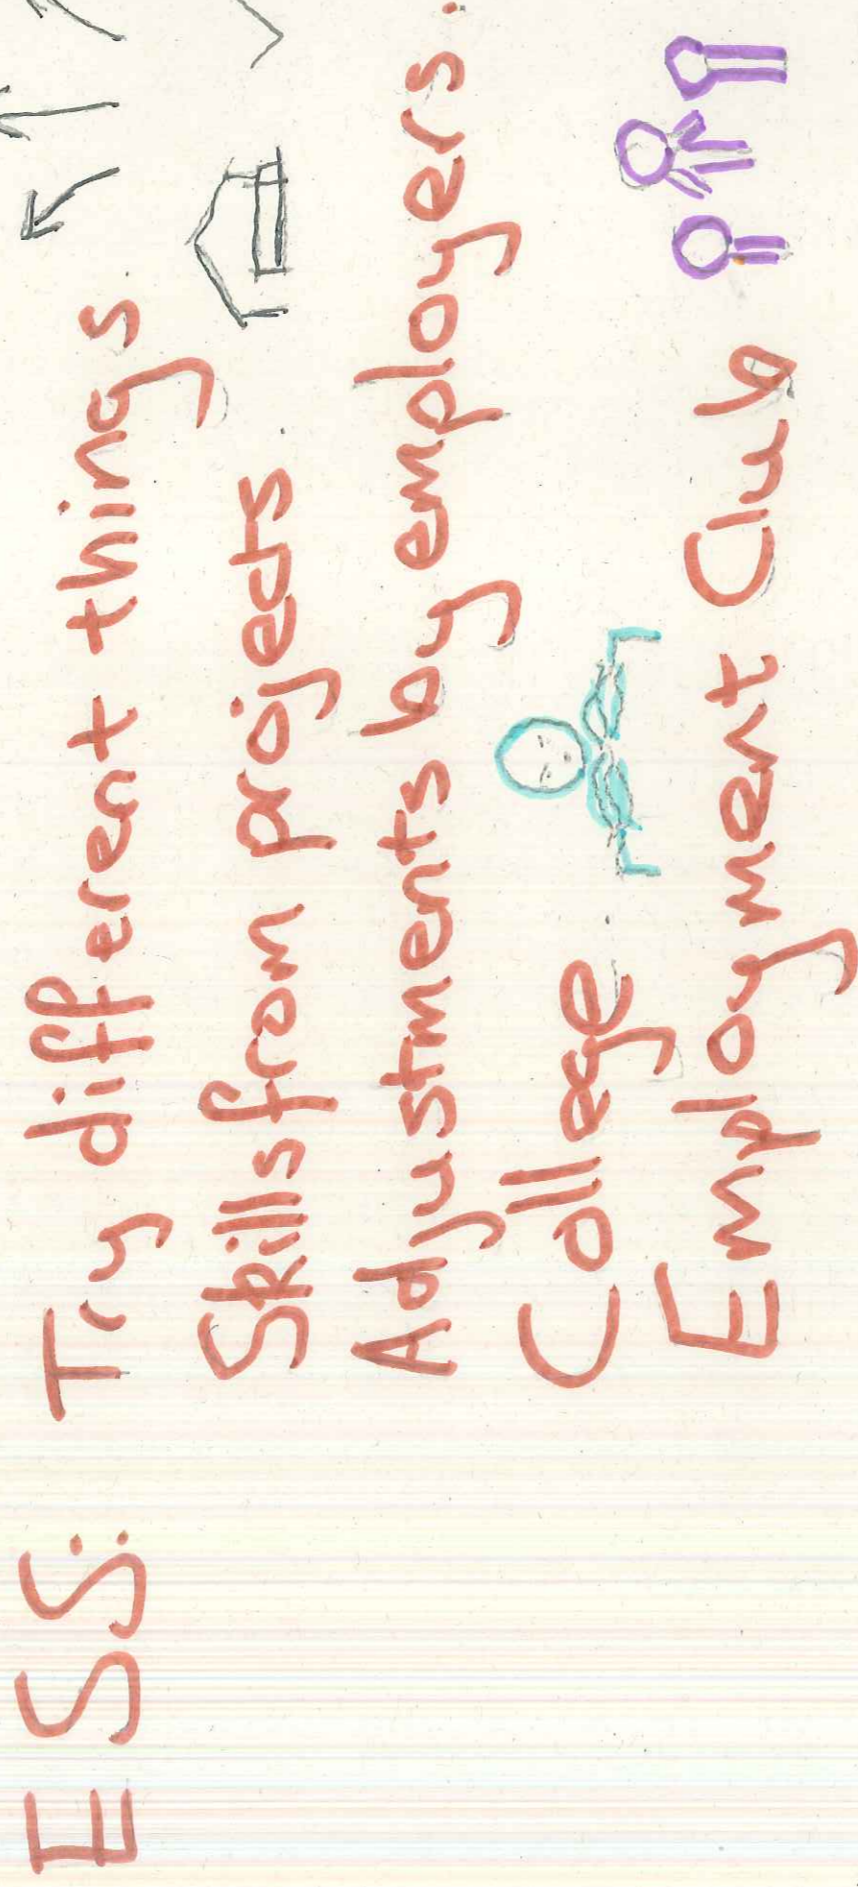 ESS: Try different things.
Skills from projects.
Adjustments by employers.
College.
Employment Club